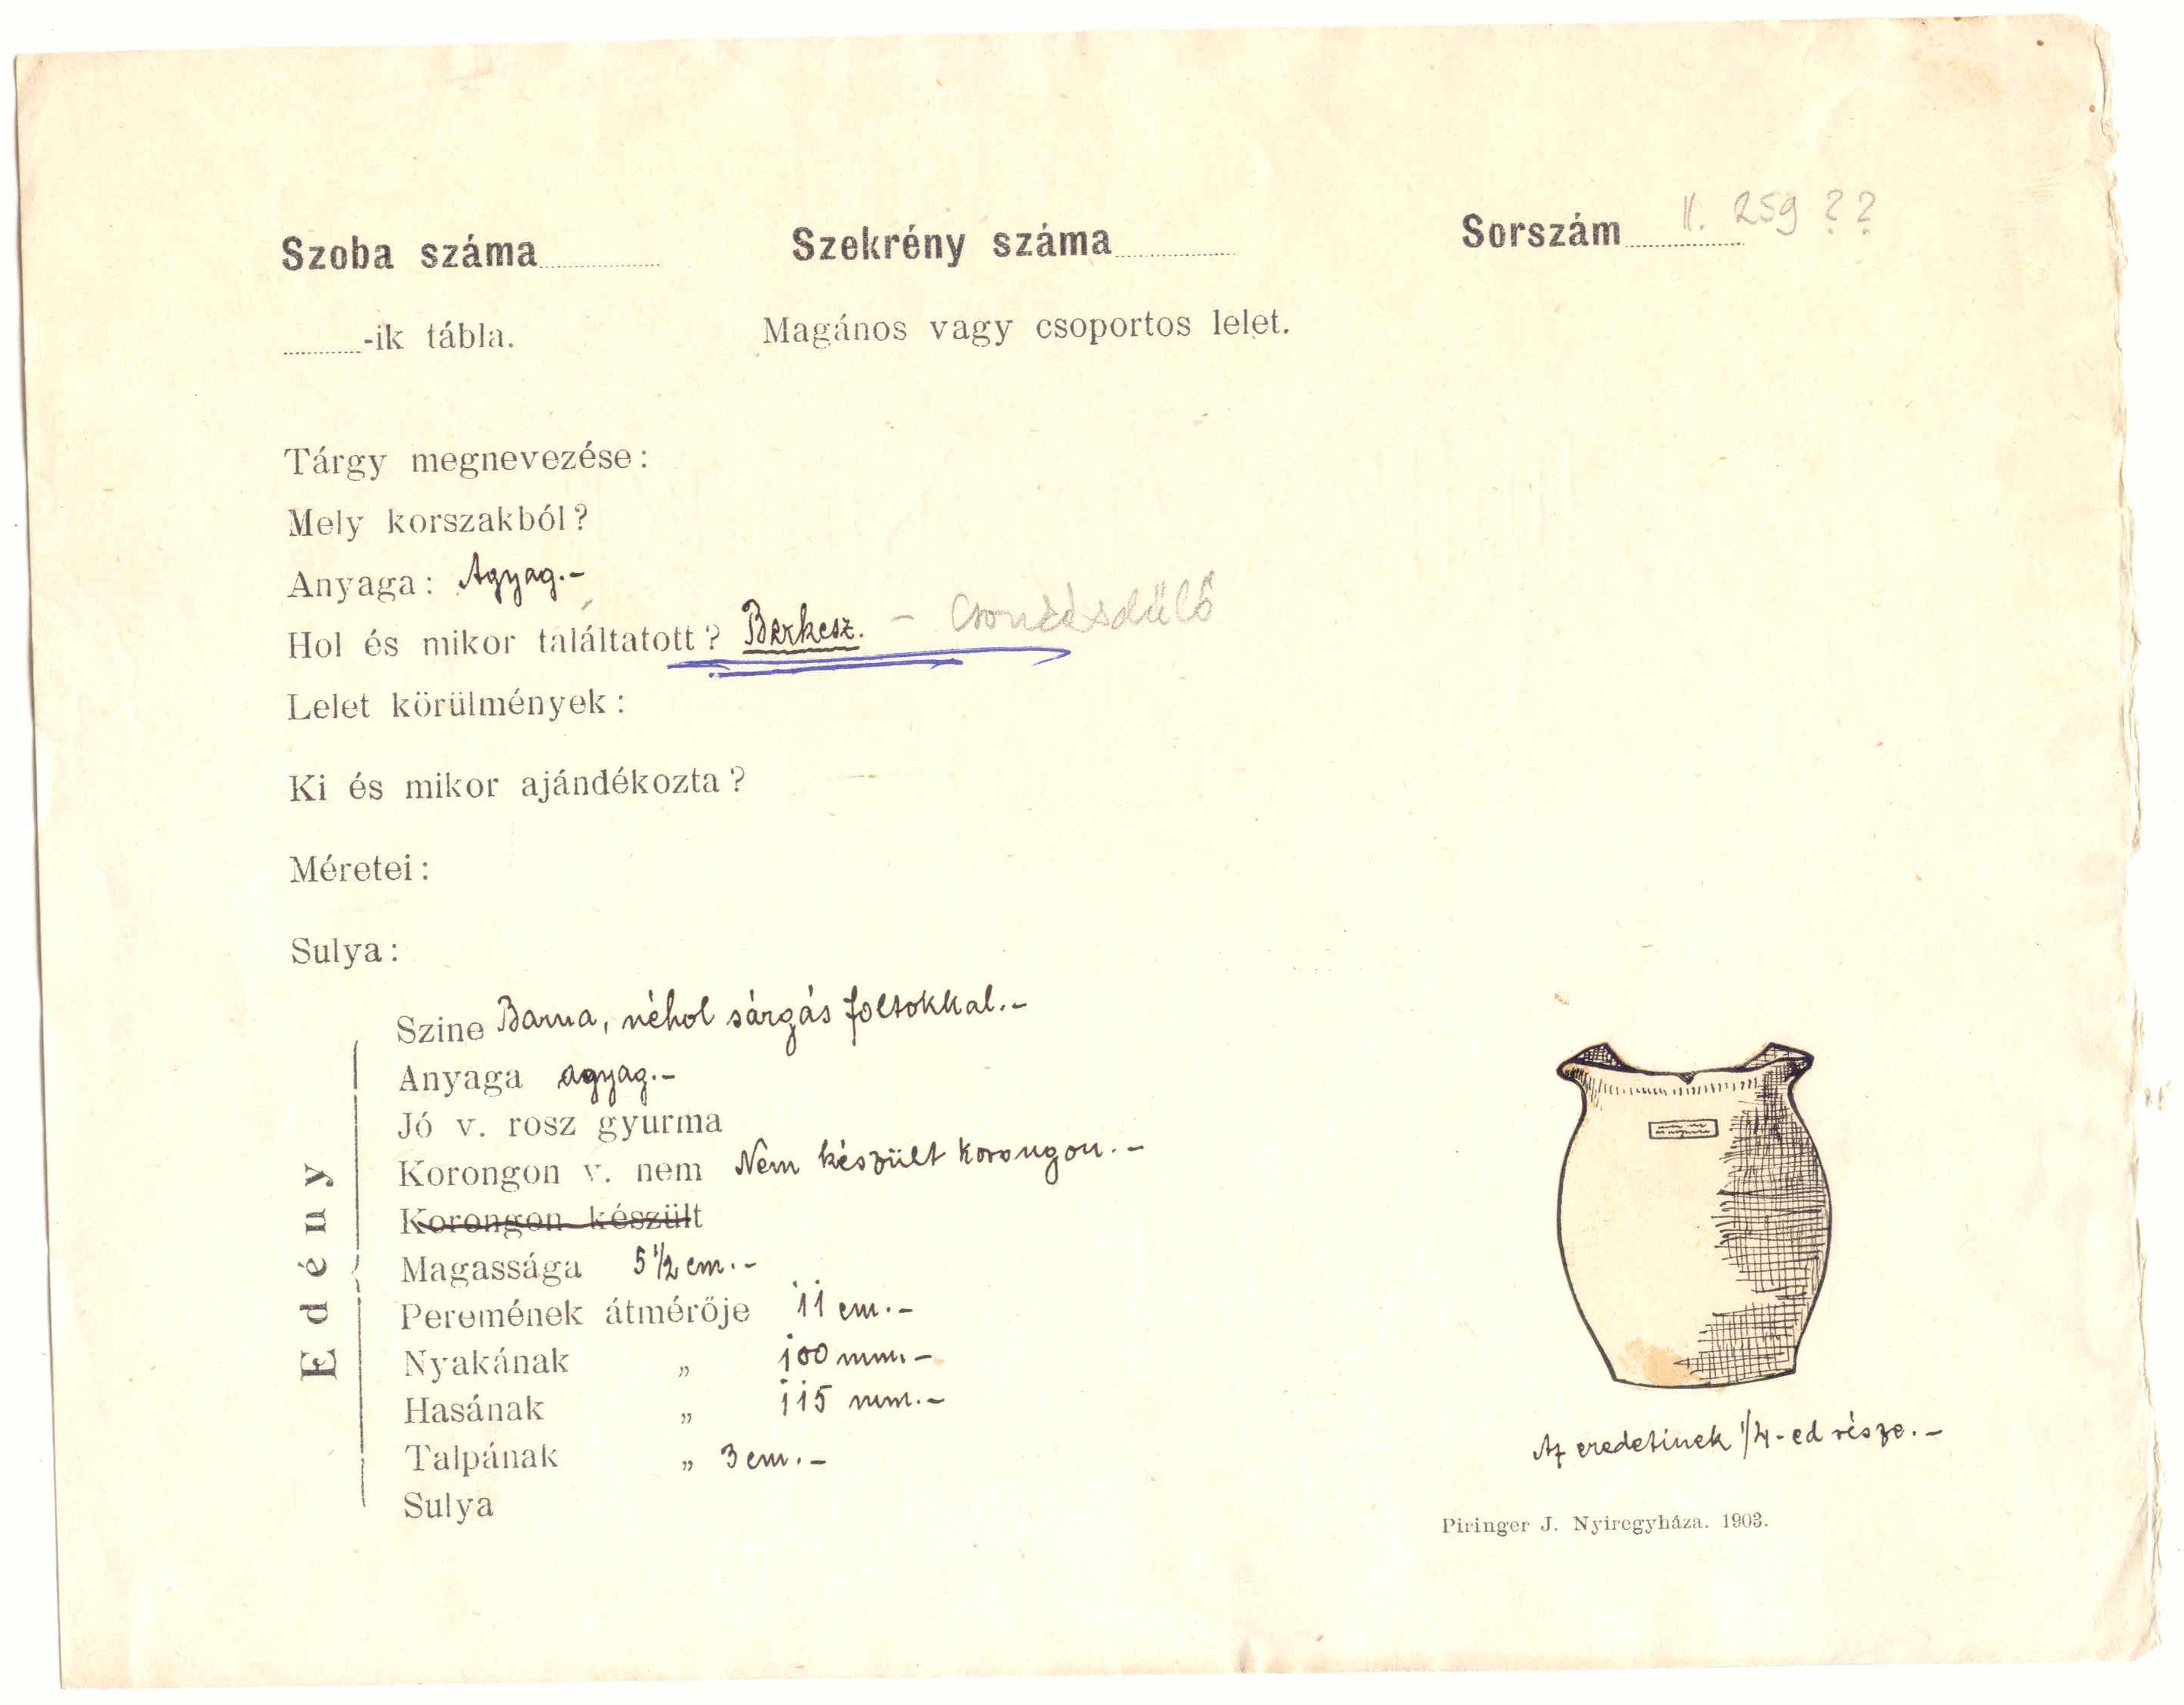 Szoba száma Szekrény száma Sorszám II. 259 ??
-ik tábla. Magános vagy csoportos lelet.
Tárgy megnevezése:
Mely korszakból?
Anyaga: Agyag.-
Hol és mikor találtatott? Berkesz. -
Lelet körülmények:
Ki és mikor ajándékozta?
Méretei:
Sulya:
Edény
Szine Barna, néhol sárgás foltokkal.-
Anyaga agyag.-
Jó v. rosz gyurma
Korongon v. nem Nem készült korongon.-
Korongon készült
Magassága 5 1/2 cm.-
Peremének átmérője 11 cm.-
Nyakának „ 100 mm.-
Hasának „ 115 mm.-
Talpának „ 3 cm.-
Sulya
Az eredetinek 1/4-ed része.-
Piringer J. Nyiregyháza. 1903.